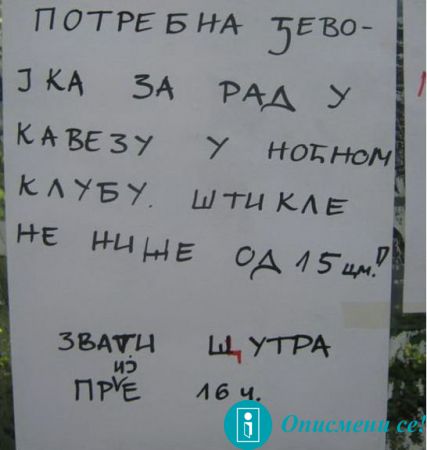 ПОТРЕБНА ЂЕВО-
ЈКА ЗА РАД У
КАВЕЗУ У НОЋНОМ
КЛУБУ. ШТИКЛЕ
НЕ НИЖЕ ОД 15 цм.!
ЗВАТИ Щ УТРА
ПРЕ 16 Ч.
Описмени се!